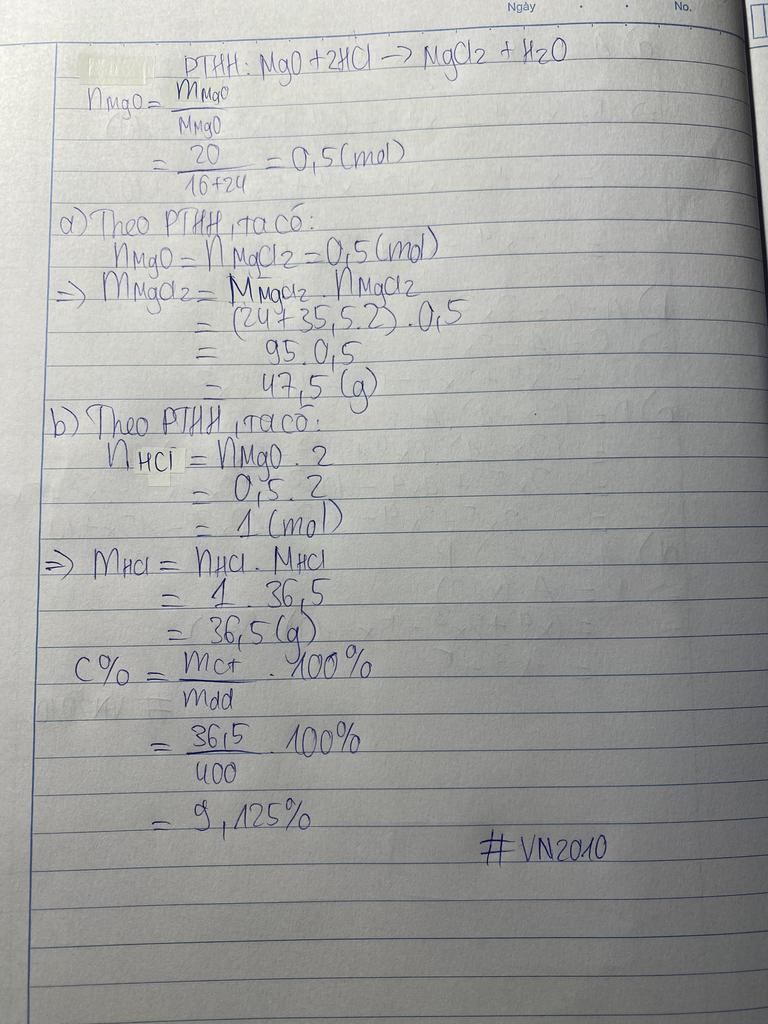 Ngày . . No.
PTHH: MgO + 2HCl -> MgCl2 + H2O
nMgO = mMgO / MMgO
= 20 / 16+24 = 0,5 (mol)
a) Theo PTHH, ta có:
nMgO = nMgCl2 = 0,5 (mol)
=> mMgCl2 = MMgCl2 . nMgCl2
= (24+35,5.2) . 0,5
= 95 . 0,5
= 47,5 (g)
b) Theo PTHH, ta có:
nHCl = nMgO . 2
= 0,5 . 2
= 1 (mol)
=> mHCl = nHCl . MHCl
= 1 . 36,5
= 36,5 (g)
C% = mct / mdd . 100%
= 36,5 / 400 . 100%
= 9,125%
#VN2010